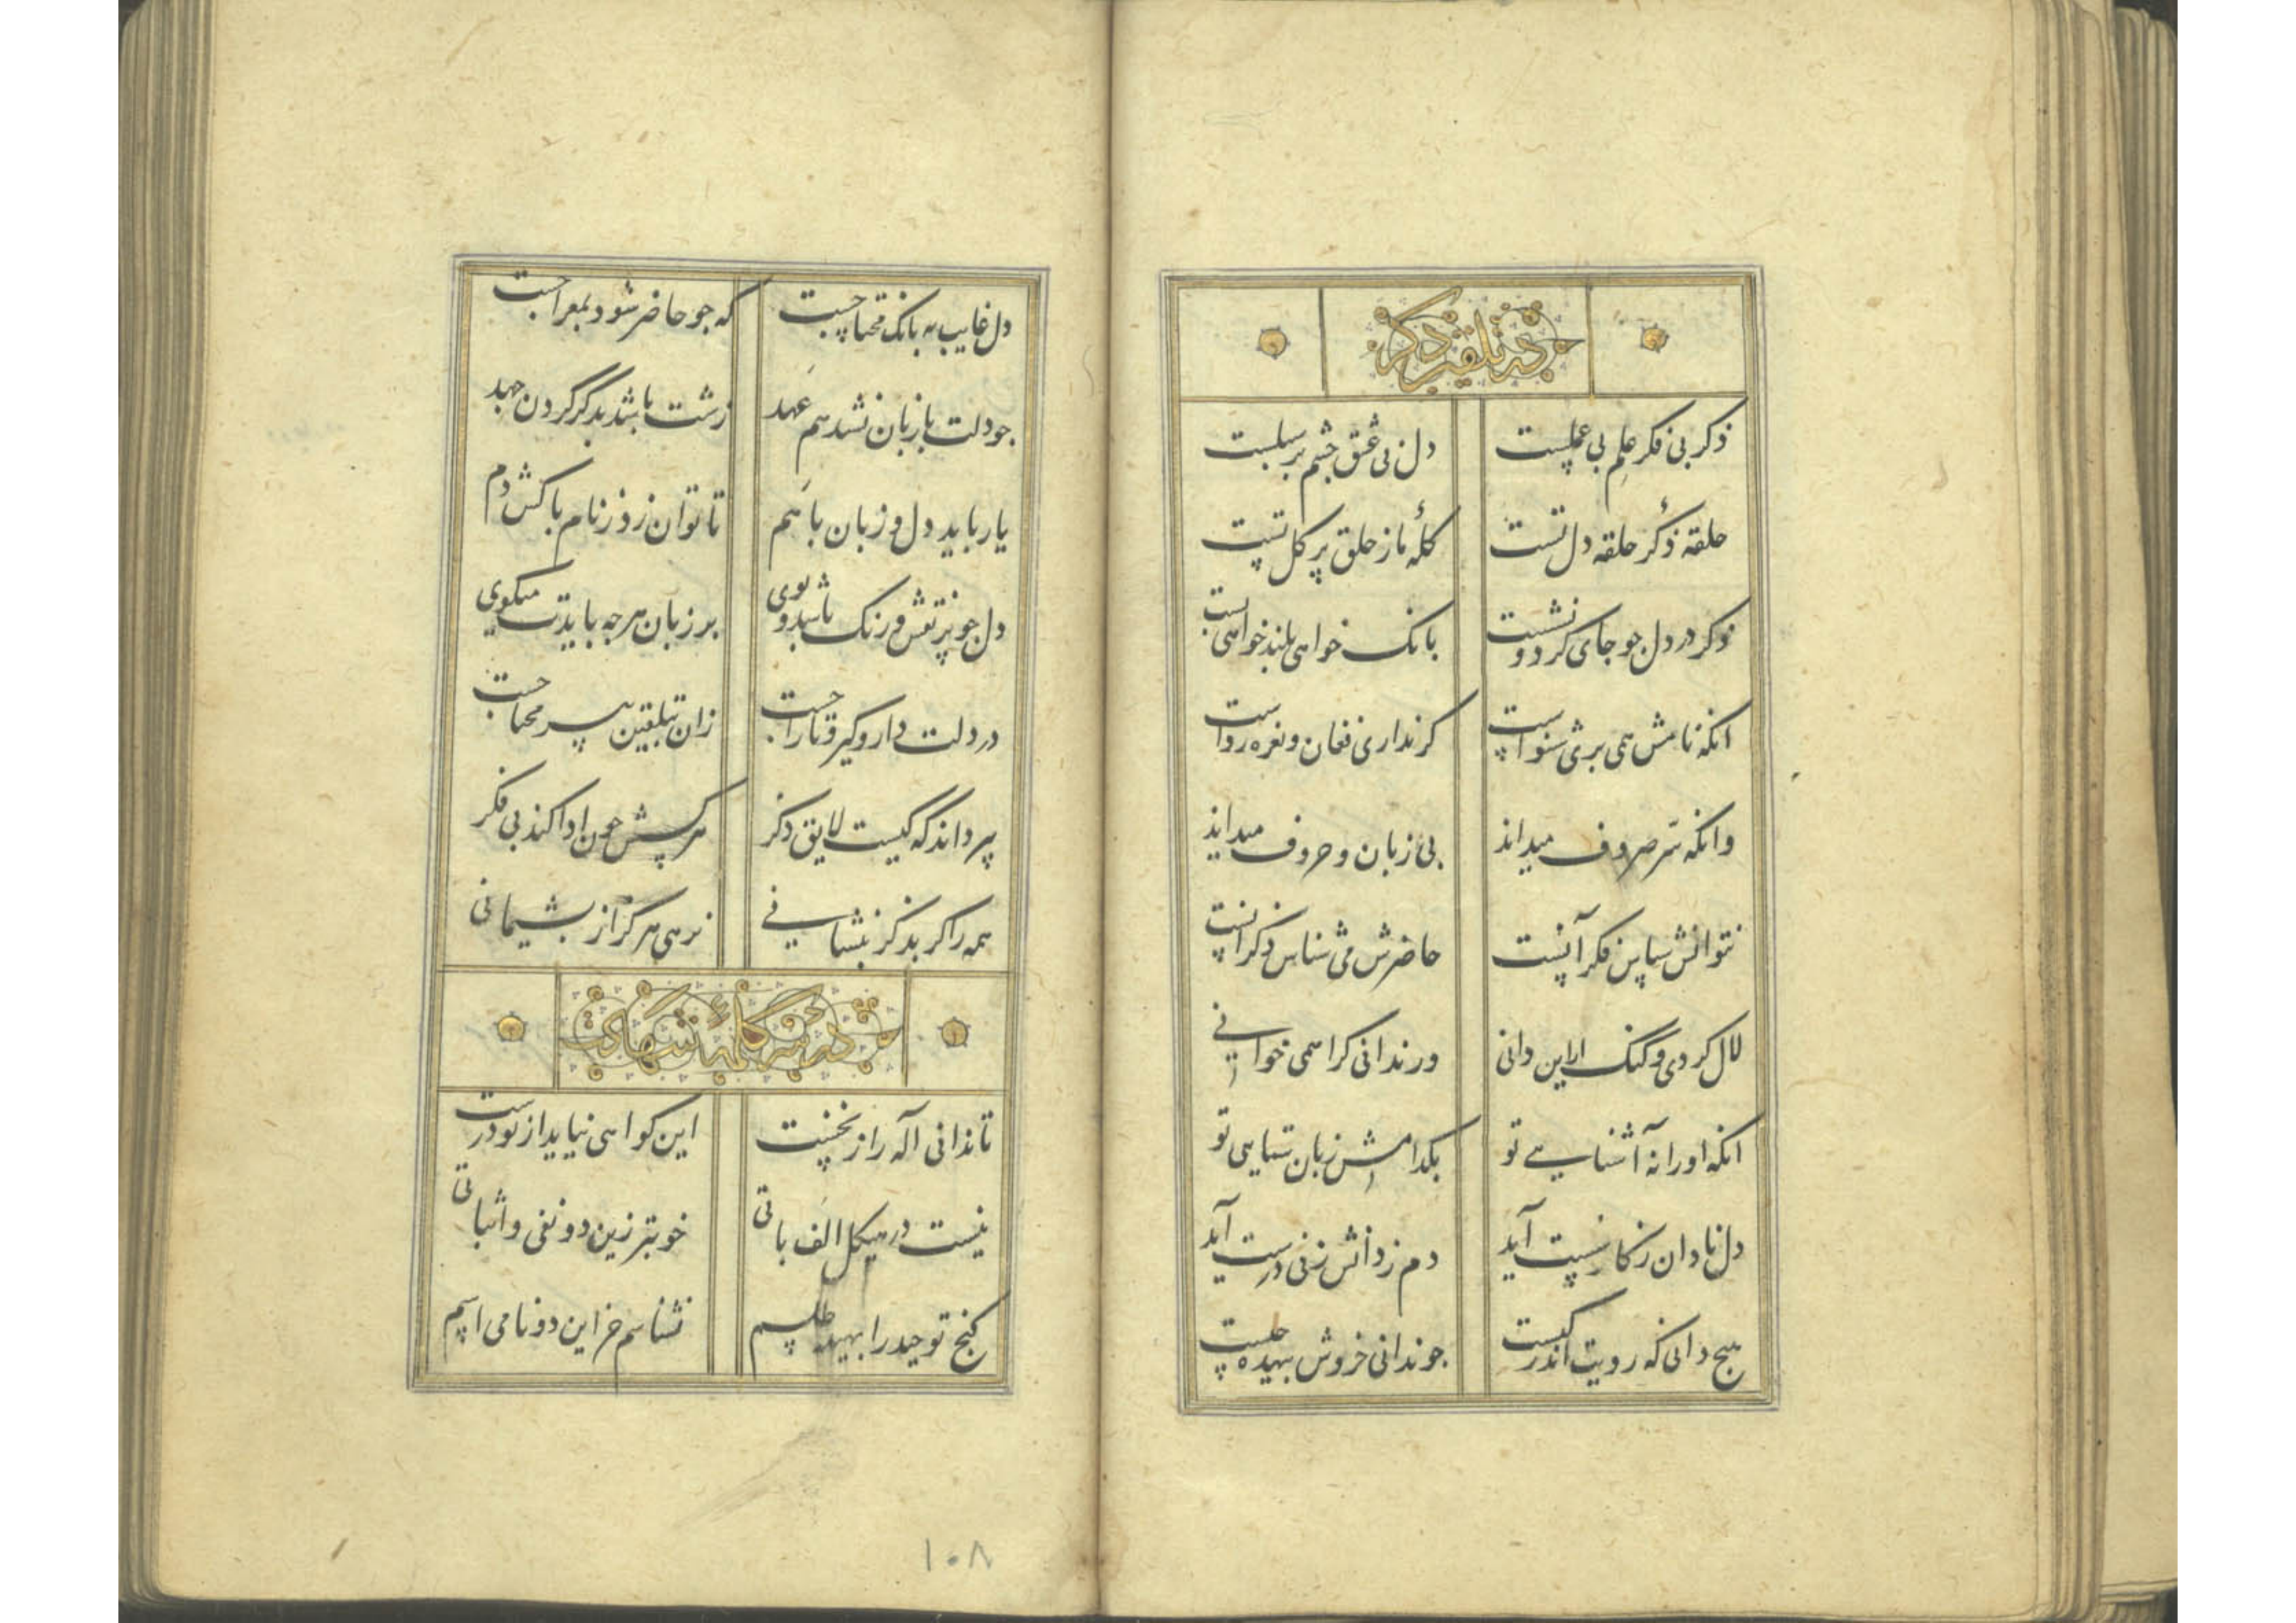 در تلقین ذکر
ذکر بی فکر علم بی عملست دل بی عشق چشم بر سبلست
حلقه ذکر حلقه دل تست کله ما ز حلق پر کل تست
ذکر در دل جو جای کرد و نشست بانک خواهی بلند خواهی پست
انکه نامش همی بری شنواست کر نداری فغان و نعره رواست
وانکه سر صروف میداند بی زبان و حروف میداند
نتوانش سپاس فکر آنست حاضرش می شناس ذکر انست
لال کردی و کنک ار این دانی ور ندانی کرا همی خوانی
انکه او را نه آشنایی تو بکدامش زبان ستایی تو
دل نادان ز کار سست آید دم ز دانش زنی درست آید
هیچ دانی که رویت اندر کیست جو ندانی خروش بیهده چیست
دل غایب به بانک محتاجست که جو حاضر شود بمعراجست
جو دلت با زبان نشد هم عهد زشت باشد بذکر کردن جهد
یار باید دل و زبان با هم تا توان زد ز نام پاکش دم
دل جو پر نقش و رنک باشد و بوی بر زبان هرجه بایدت میکوی
در دلت دار و کیر و تاراجست زان بتلقین پیر محتاجست
پیر داند که کیست لایق ذکر هر کسش چون ادا کند بی فکر
همه را کر بذکر بنشانی نرهی هرکز از پشیمانی
در سر کلمه شهادت
تا ندانی آله را ز نخست این کواهی نیاید از تو درست
نیست در هیکل الف باتی خوبتر زین دو نفی و اثباتی
کنج توحید را بهینه طلسم نشناسم جز این دو نامی اسم
۱۰۸